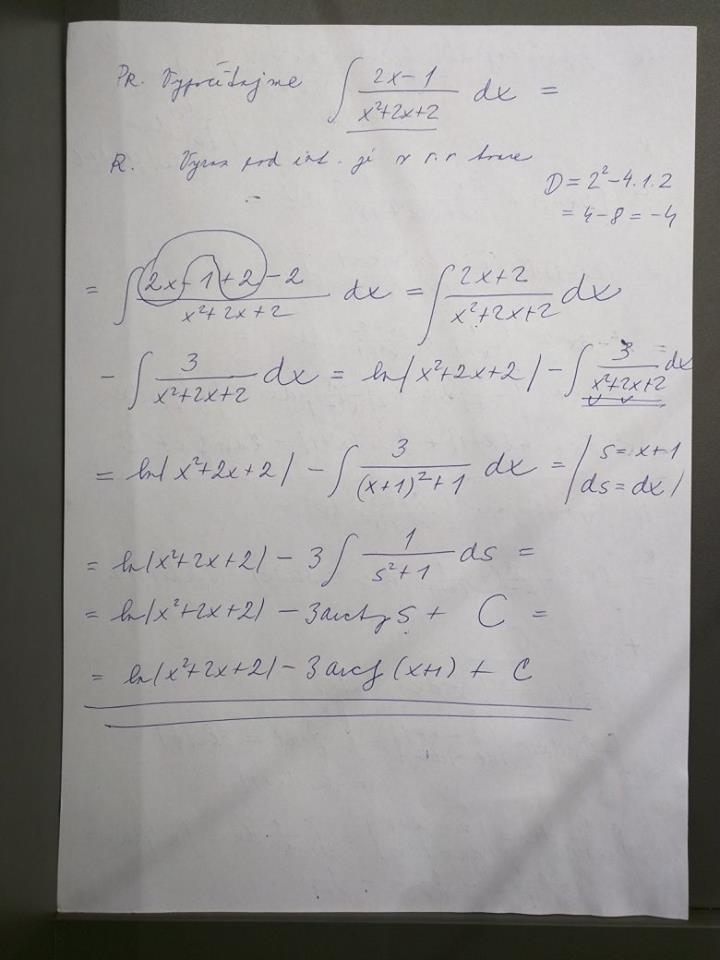 Pr. Vypočítajme ∫ (2x-1)/(x²+2x+2) dx =
R. Výraz pod int. je v r.r tvare
D = 2² - 4.1.2
= 4 - 8 = -4
= ∫ (2x-1+2-2)/(x²+2x+2) dx = ∫ (2x+2)/(x²+2x+2) dx
- ∫ 3/(x²+2x+2) dx = ln|x²+2x+2| - ∫ 3/(x²+2x+2) dx
= ln|x²+2x+2| - ∫ 3/((x+1)²+1) dx = | s = x+1
ds = dx |
= ln|x²+2x+2| - 3 ∫ 1/(s²+1) ds =
= ln|x²+2x+2| - 3 arctg s + C =
= ln|x²+2x+2| - 3 arctg (x+1) + C